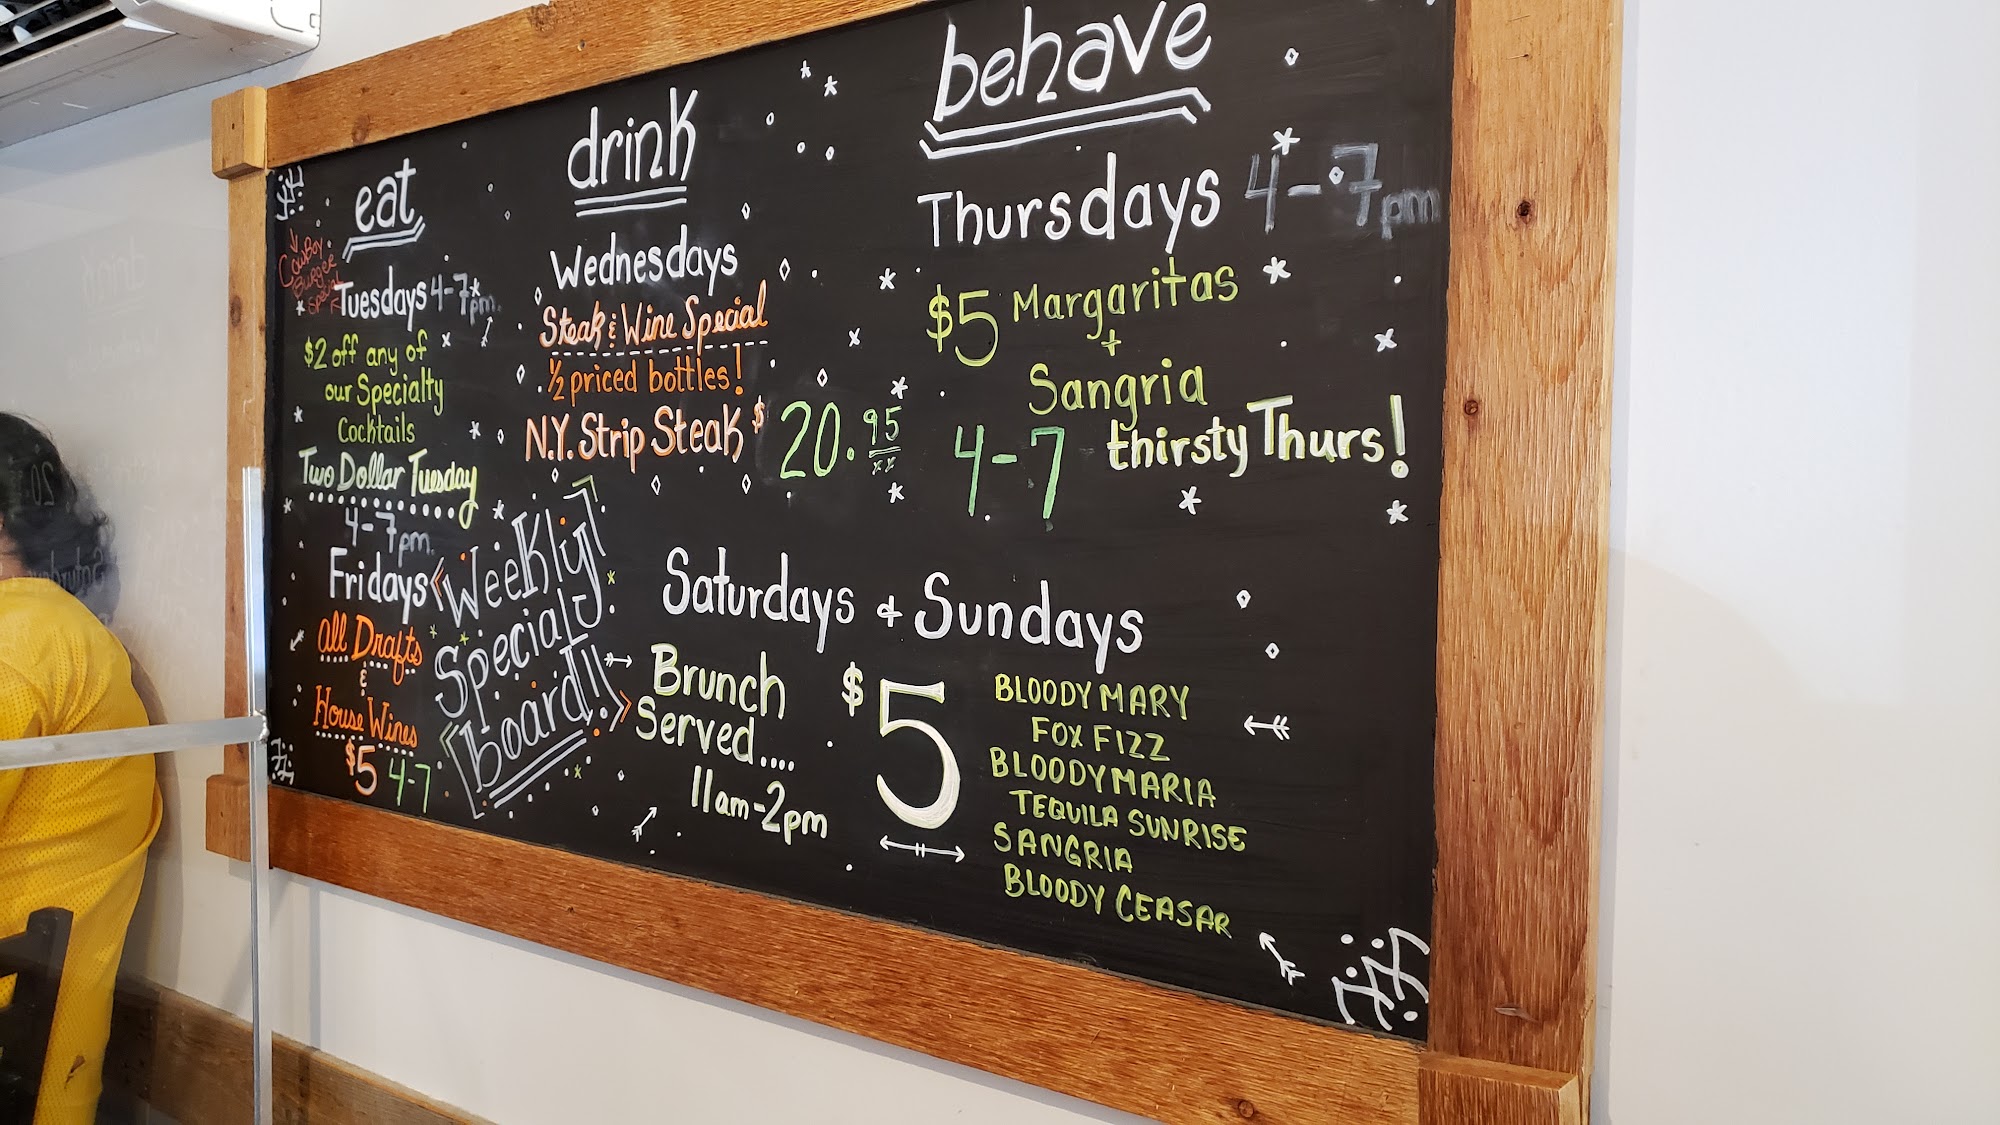 eat
drink
behave
Cowboy
Burger
Special
Tuesdays 4-7pm.
$2 off any of
our Specialty
Cocktails
Two Dollar Tuesday
Wednesdays
Steak & Wine Special
1/2 priced bottles!
N.Y. Strip Steak $20.95
Thursdays 4-7pm
$5 Margaritas
+
Sangria
4-7 thirsty Thurs!
4-7pm.
Fridays
All Drafts
&
House Wines
$5 4-7
Weekly
Specialy
board!!
Saturdays + Sundays
Brunch
Served....
11am-2pm
$5
BLOODY MARY
FOX FIZZ
BLOODY MARIA
TEQUILA SUNRISE
SANGRIA
BLOODY CEASAR